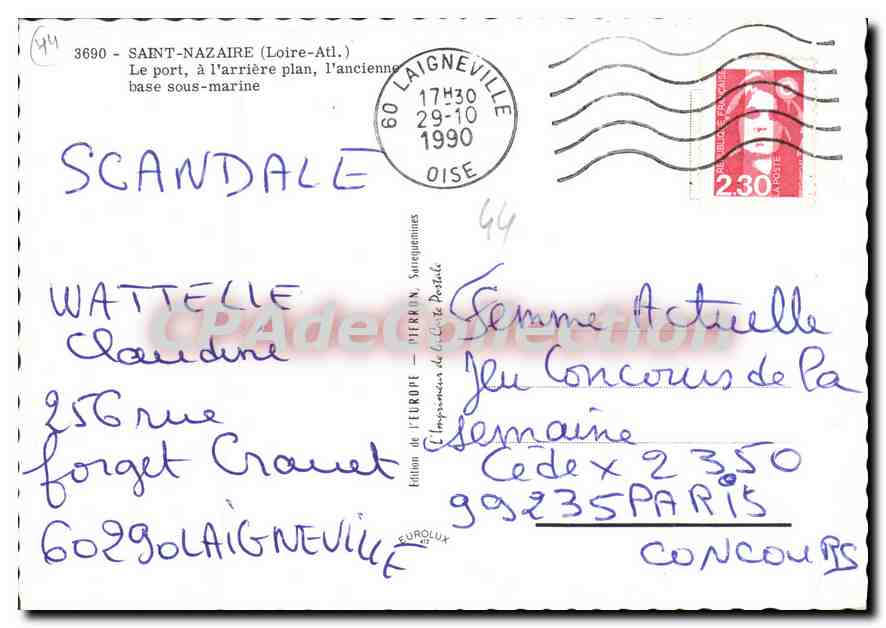 44
3690 - SAINT-NAZAIRE (Loire-Atl.)
Le port, à l'arrière plan, l'ancienne
base sous-marine
60 LAIGNEVILLE
17H30
29-10
1990
OISE
RÉPUBLIQUE FRANÇAISE
2.30
LA POSTE
SCANDALE
44
WATTELLE
Claudine
256 rue
forget Crauet
60290 LAIGNEVILLE
Edition de l'EUROPE — PIERRON, Sarreguemines
L'Imprimeur de la Carte Postale
EUROLUX
Femme Actuelle
Jeu Concours de la
semaine
Cédex 2350
99235 PARIS
CONCOURS
CPAdeCollection